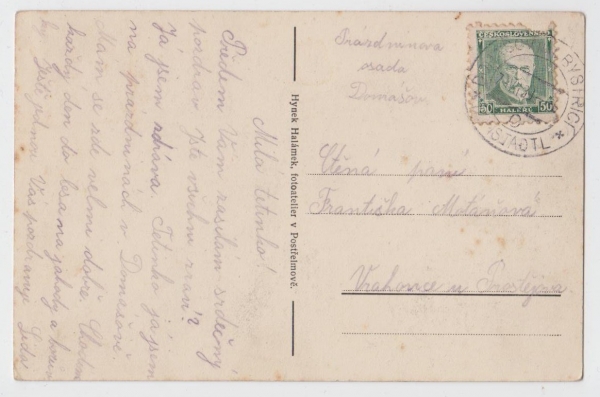 Milá tetinko!
Předem Vám zasílám srdečný
pozdrav. Jste všichni zraví?
Já jsem zdráva. Tetinko já jsem
na prázdninách v Domašově.
Mám se zde velmi dobře. Chodím
každý den do lesa na jahody a
Vás pozdravuje Lida
Hynek Halámek, fotoatelier v Postřelmově.
Prázdninová
osada
Domašov
ČESKOSLOVENSKO
50 HALÉŘŮ 50
Ctěná paní
Františka
Vrahovice u Prostějova